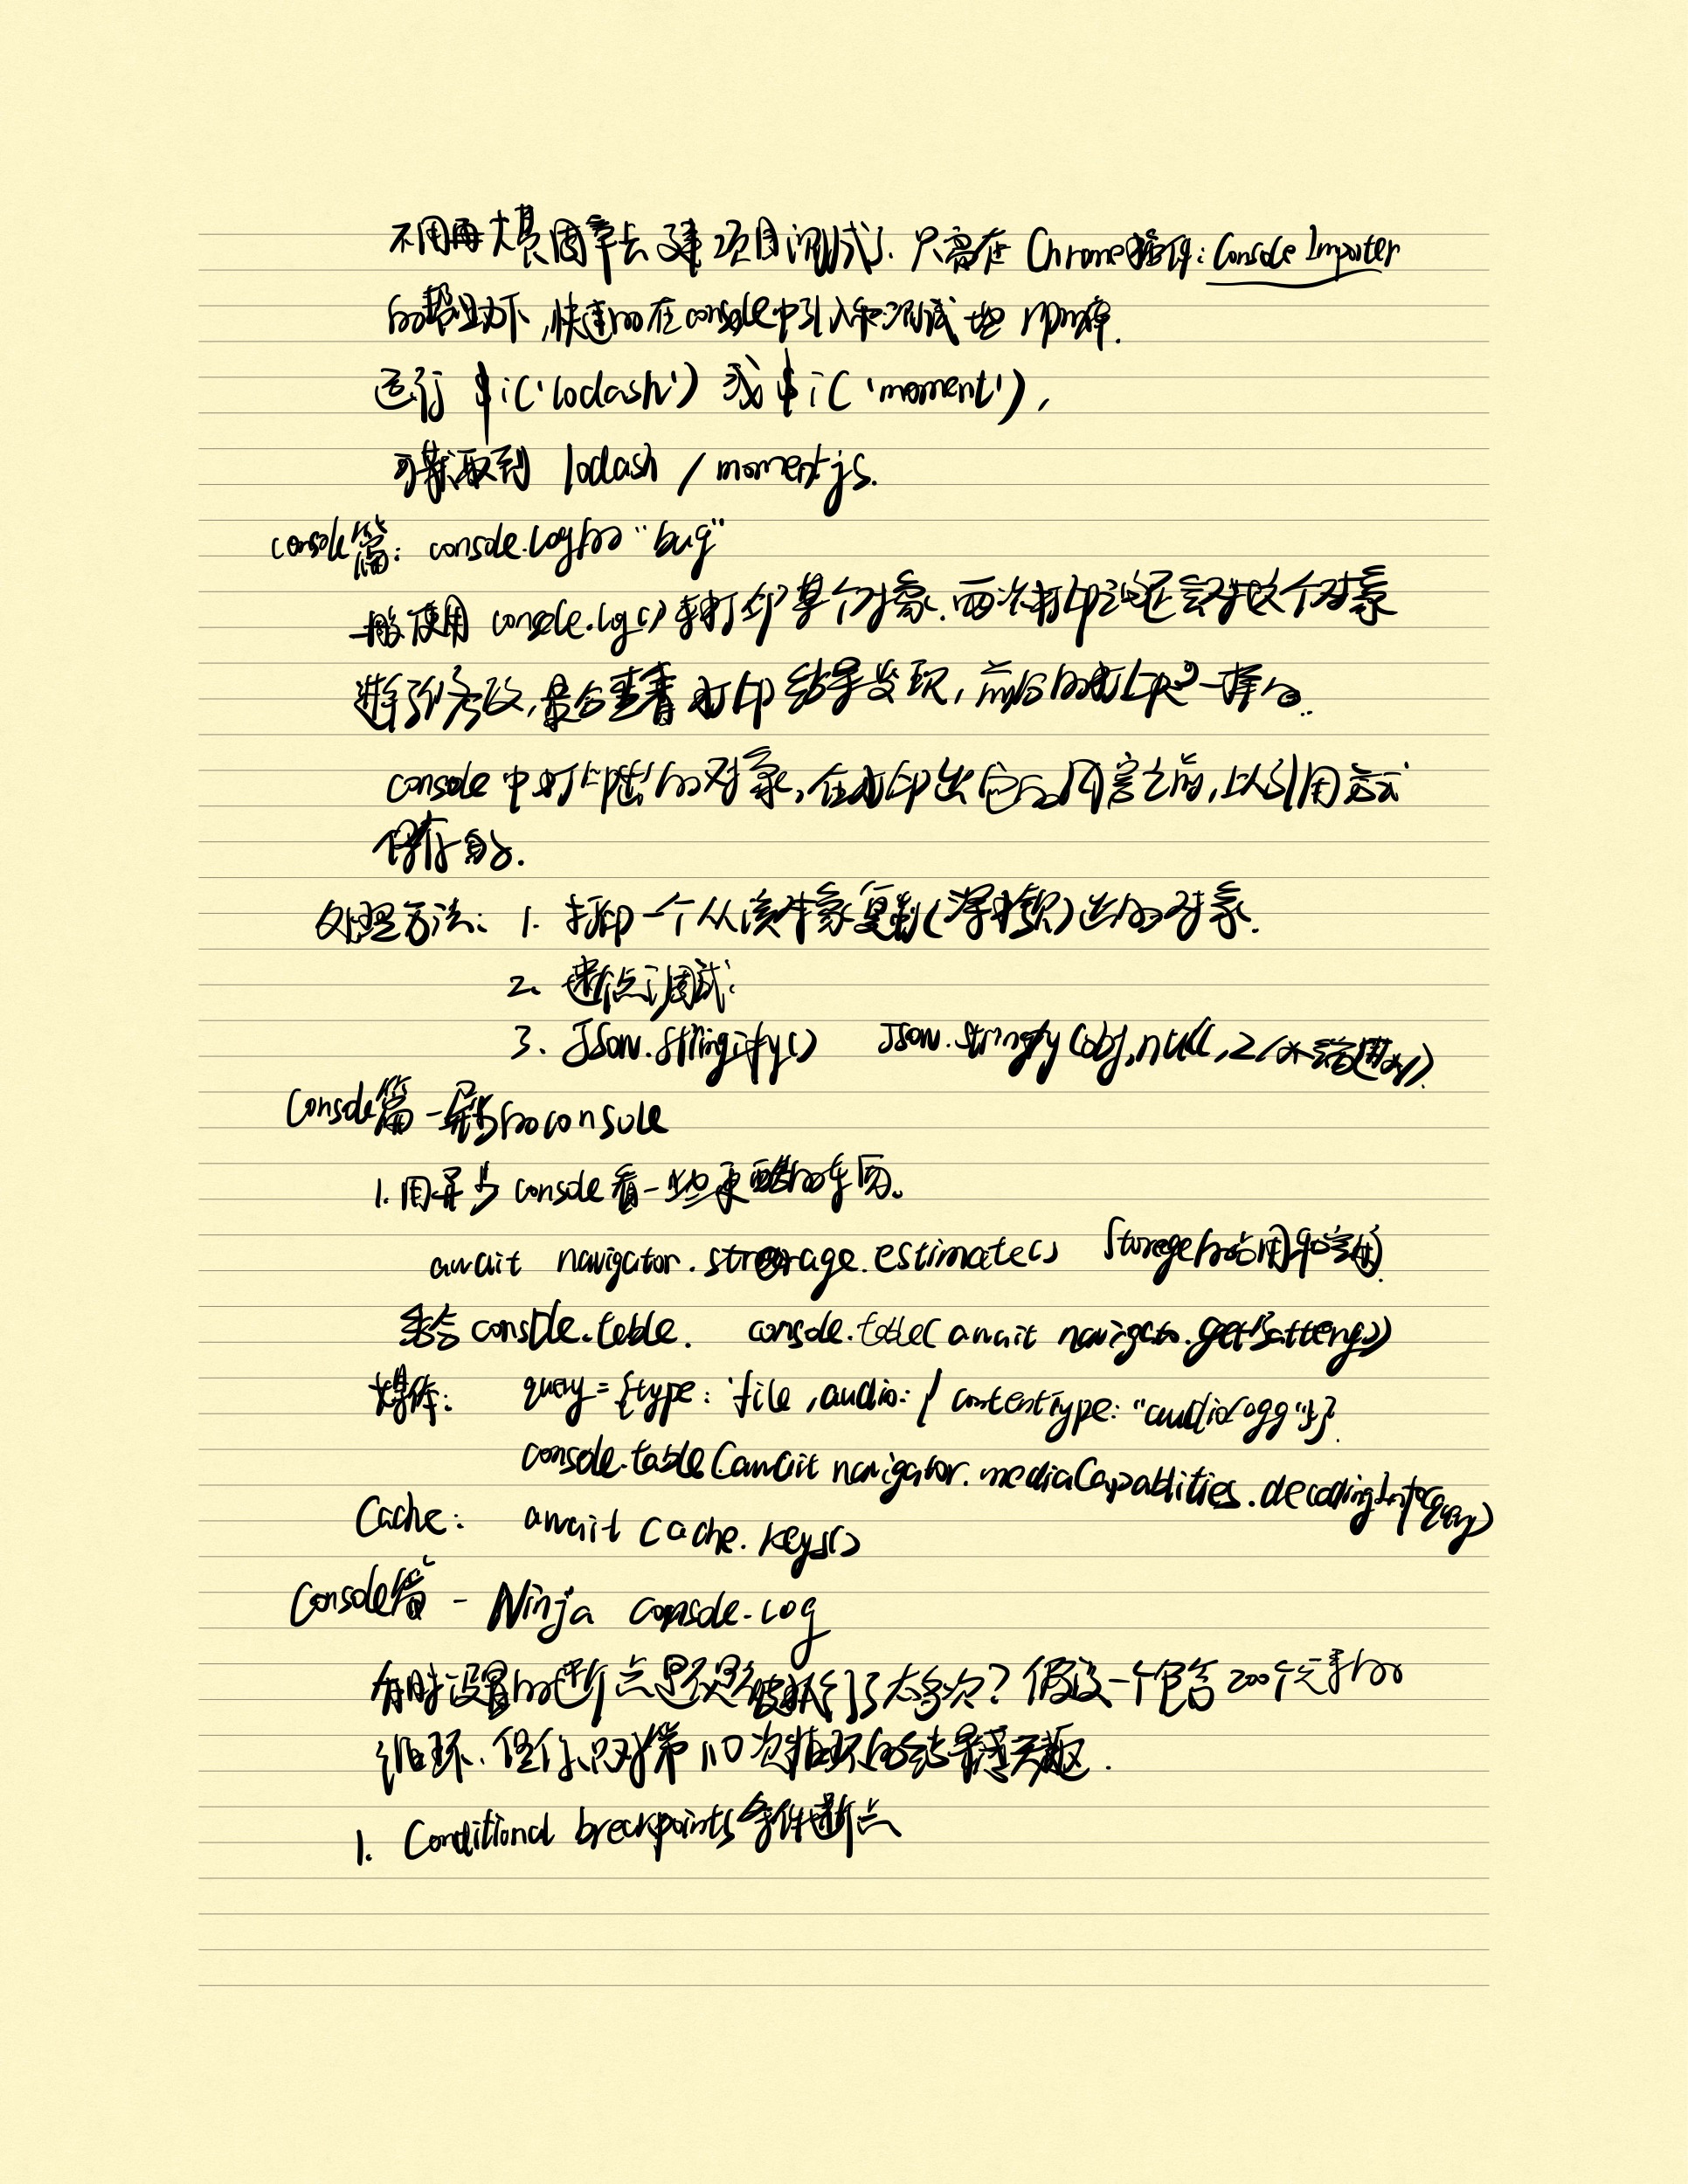 不用再大费周章去建项目测试了. 只需在 Chrome插件: Console Importer
的帮助下,快速的在console中引入和测试一些 npm库.
运行 $i('lodash') 或 $i('moment'),
可获取到 lodash / momentjs.
console篇: console.log的 "bug"
一般使用 console.log()来打印某个对象. 两次打印之间还会对这个对象
进行修改,最后查看打印结果发现, 前后的打印是一样的..
console 中打印出的对象,在打印出它的内容之前,以引用方式
保存的.
处理方法: 1. 打印一个从该对象复制(深拷贝)出的对象.
2. 断点调试:
3. JSON.stringify() JSON.stringify(obj,null,2
Console篇 - 异步的console
1.用异步 console 看一些更的东西。
await navigator.storage.estimate() Storage的占用和空闲
结合 console.table. console.table( await navigator.getBattery())
媒体: query = {type: 'file ,audio: { contentType: "audio/ogg"}}
console.table(await navigator.mediaCapablities.decodingInfo(query)
Cache: await cache.keys()
Console篇 - Ninja console.log
有时设置的断点是不是被执行了太多次? 假设一个包含 200个元素的
循环. 但你只对第 110 次循环的结果感兴趣 .
1. Conditional breakpoints 条件断点